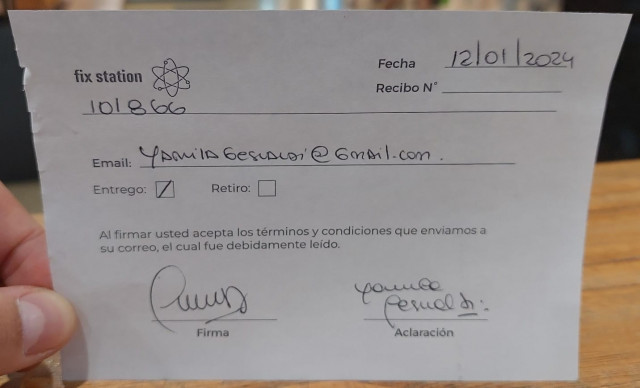 fix station
Fecha 12/01/2024
Recibo N°
101866
Email: @Gmail.com.
Entrego:
Retiro:
Al firmar usted acepta los términos y condiciones que enviamos a
su correo, el cual fue debidamente leído.
Firma
Aclaración